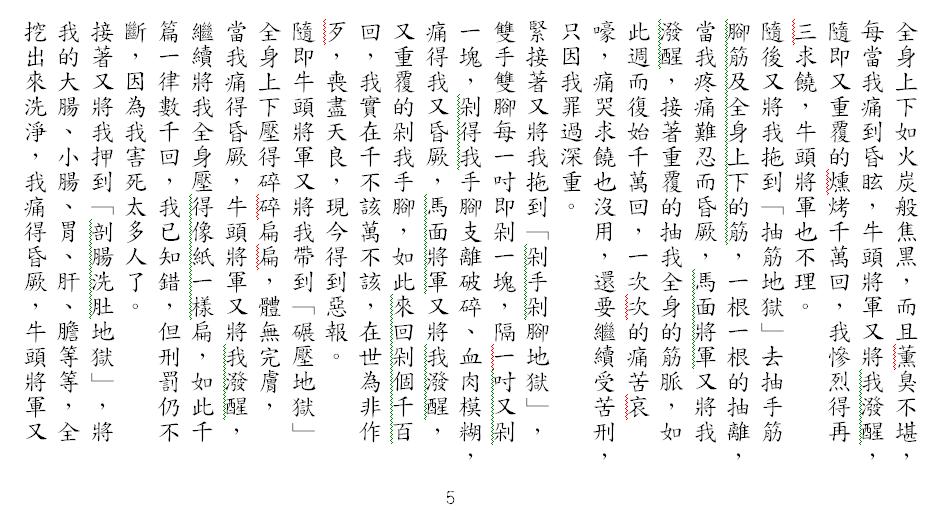 全身上下如火炭般焦黑，而且薰臭不堪，
每當我痛到昏眩，牛頭將軍又將我潑醒，
隨即又重覆的燻烤千萬回，我慘烈得再
三求饒，牛頭將軍也不理。
隨後又將我拖到「抽筋地獄」去抽手筋
腳筋及全身上下的筋，一根一根的抽離，
當我疼痛難忍而昏厥，馬面將軍又將我
潑醒，接著重覆的抽我全身的筋脈，如
此週而復始千萬回，一次次的痛苦哀
嚎，痛哭求饒也沒用，還要繼續受苦刑，
只因我罪過深重。
緊接著又將我拖到「剁手剁腳地獄」，
雙手雙腳每一吋即剁一塊，隔一吋又剁
一塊，剁得我手腳支離破碎、血肉模糊，
痛得我又昏厥，馬面將軍又將我潑醒，
又重覆的剁我手腳，如此來回剁個千百
回，我實在千不該萬不該，在世為非作
歹，喪盡天良，現今得到惡報。
隨即牛頭將軍又將我帶到「碾壓地獄」
全身上下壓得碎碎扁扁，體無完膚，
當我痛得昏厥，牛頭將軍又將我潑醒，
繼續將我全身壓得像紙一樣扁，如此千
篇一律數千回，我已知錯，但刑罰仍不
斷，因為我害死太多人了。
接著又將我押到「剖腸洗肚地獄」，將
我的大腸、小腸、胃、肝、膽等等，全
挖出來洗淨，我痛得昏厥，牛頭將軍又
5